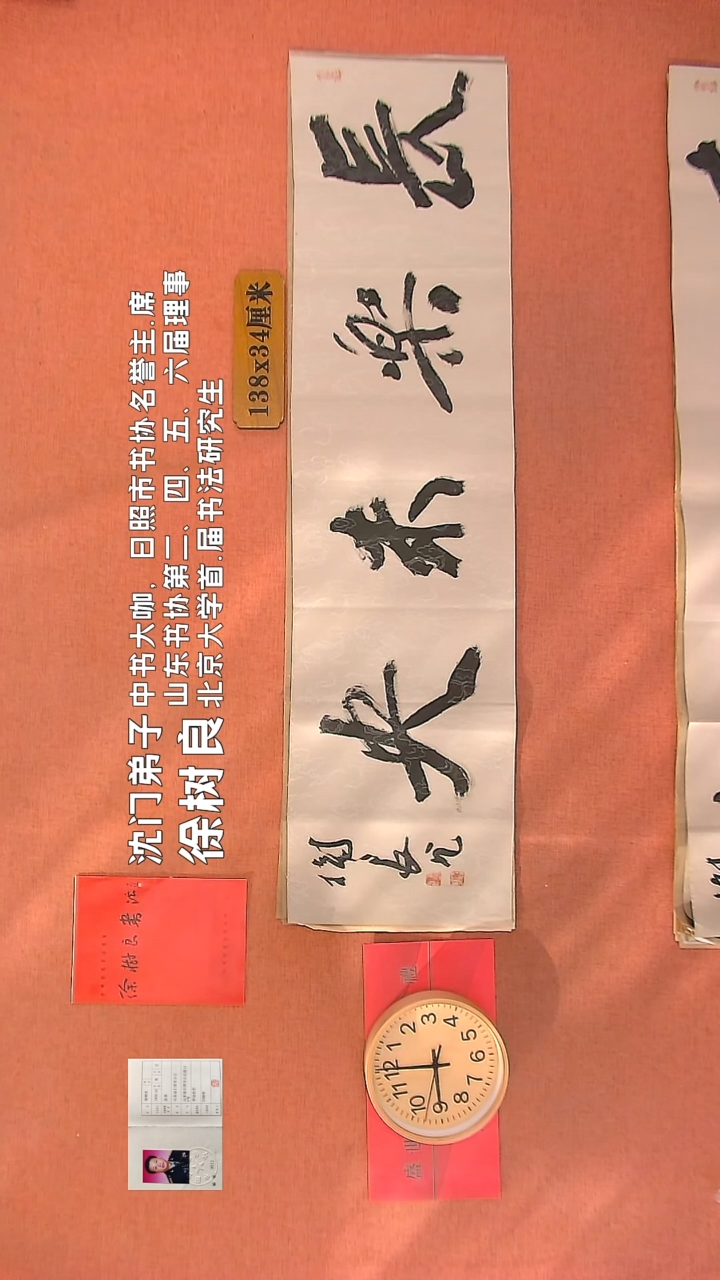 沈门弟子
徐树良
中书大咖, 日照市书协名誉主.席
山东书协第二、四、五、六届理事
北京大学首.届书法研究生
138x34厘米
長樂未央
徐樹良書法
12 1 2 3 4 5 6 7 8 9 10 11